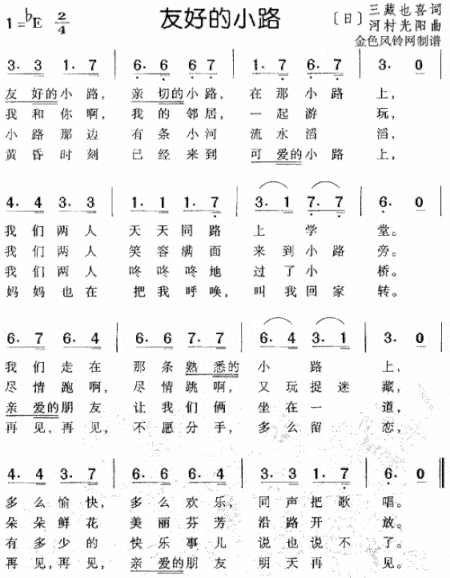 友好的小路
1=♭E 2/4
〔日〕三藏也喜词
河村光阳曲
金色风铃网制谱
3· 3 1· 7 6· 6 6· 7 1· 7 6· 7 3· 0
友好的小路, 亲切的小路, 在那小路上,
我和你啊, 我的邻居, 一起游玩,
小路那边 有条小河 流水滔滔,
黄昏时刻 已经来到 可爱的小路上,
4· 4 3· 3 1· 1 1· 1 3· 1 7· 7 6· 0
我们两人 天天同路 上学堂。
我们两人 笑容满面 来到小路旁。
我们两人 咚咚咚地 过了小桥。
妈妈也在 把我呼唤, 叫我回家转。
6· 7 6· 4 6· 6 7· 7 6· 4 3· 1 3· 0
我们走在 那条熟悉的 小路上,
尽情跑啊, 尽情跳啊, 又玩捉迷藏,
亲爱的朋友 让我们俩 坐在一道,
再见,再见, 不愿分手, 多么留恋,
4· 4 3· 7 6· 6 6· 4 3· 3 1· 7 6· 0
多么愉快, 多么欢乐, 同声把歌唱。
朵朵鲜花 美丽芬芳 沿路开放。
有多少的 快乐事儿 说也说不了。
再见,再见, 亲爱的朋友 明天再见。